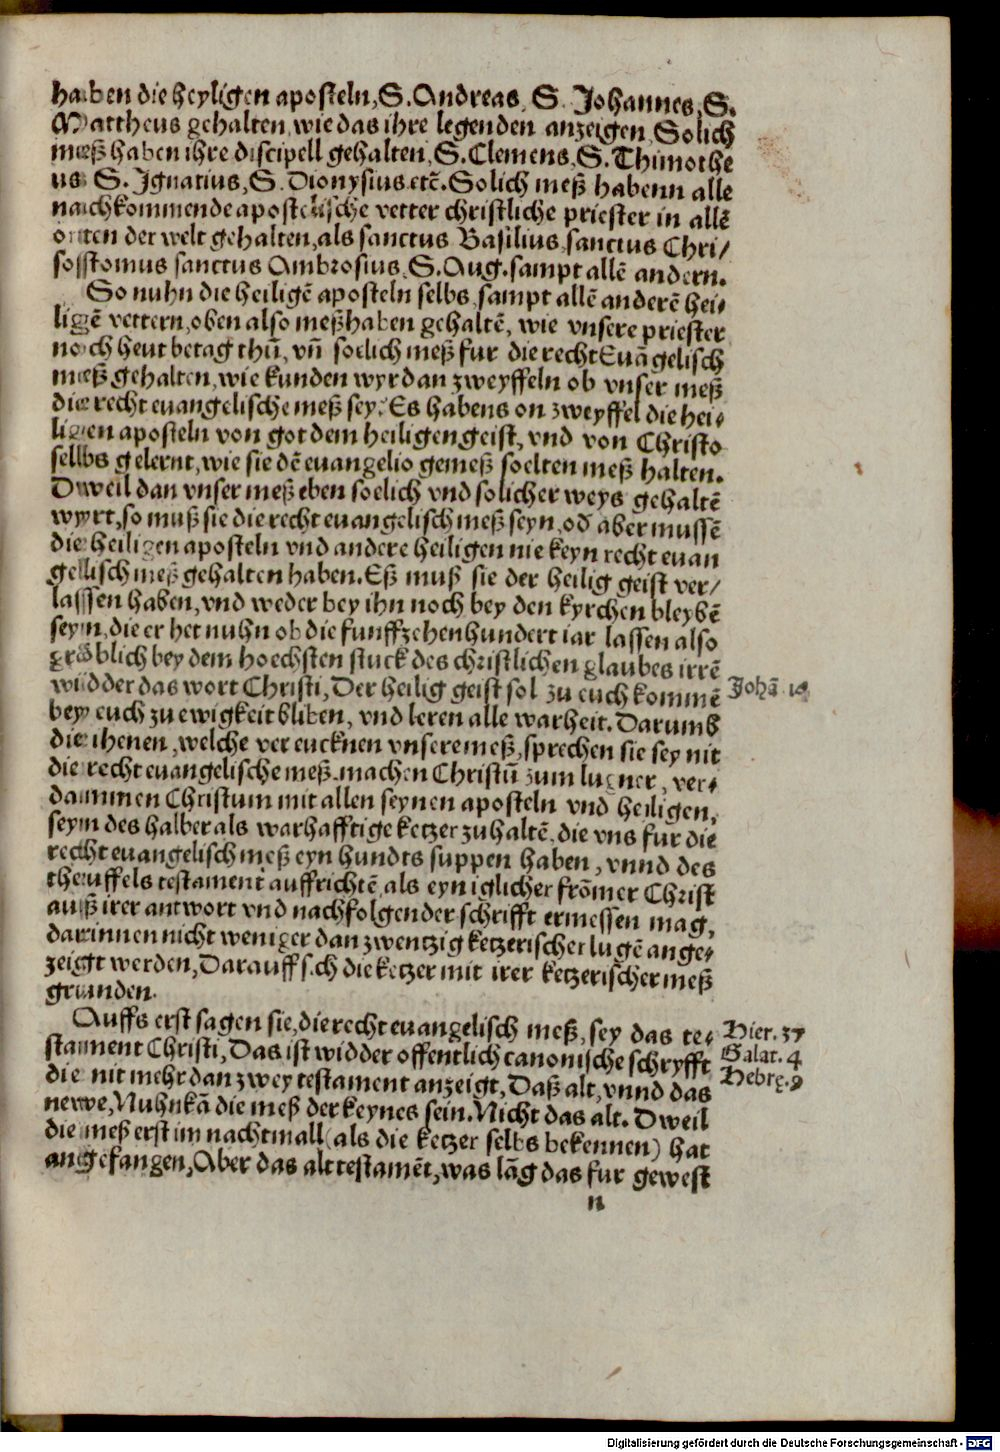 haben die heyligen aposteln, S. Andreas, S. Johannes, S.
Mattheus gehalten, wie das ihre legenden anzeigen, Solich
meß haben ihre discipell gehalten, S. Clemens, S. Thimothe
us S. Ignatius, S. Dionysius etc̄. Solich meß habenn alle
nachkommende apostelische vetter christliche priester in allē
orten der welt gehalten, als sanctus Basilius, sanctus Chri/
sostomus sanctus Ambrosius, S. Aug. sampt allē andern.
So nuhn die heiligē aposteln selbs, sampt allē anderē hei⸗
ligē vettern, oben also meß haben gehaltē, wie vnsere priester
noch heut betag thū, vñ soelich meß fur die recht Euāgelisch
meß gehalten, wie kunden wyr dan zweyffeln ob vnser meß
die recht euangelische meß sey. Es habens on zweyffel die hei⸗
ligen aposteln von got dem heiligen geist, vnd von Christo
selbs gelernt, wie sie dē euangelio gemeß soelten meß halten.
Dweil dan vnser meß eben soelich vnd solicher weys gehaltē
wyrt, so muß sie die recht euangelisch meß seyn, od̄ aber mussē
die heiligen aposteln vnd andere heiligen nie keyn recht euan
gelisch meß gehalten haben. Eß muß sie der heilig geist ver/
lassen haben, vnd weder bey ihn noch bey den kyrchen bleybē
seyn, die er het nuhn ob die funffzehenhundert iar lassen also
gröblich bey dem hoechsten stuck des christlichen glaubes irrē
widder das wort Christi, Der heilig geist sol zu euch kommē
bey euch zu ewigkeit bliben, vnd leren alle warheit. Darumb
die ihenen, welche vereucknen vnsere meß, sprechen sie sey nit
die recht euangelische meß, machen Christū zum lugner, ver⸗
dammen Christum mit allen seynen aposteln vnd heiligen,
seyn des halber als warhafftige ketzer zuhaltē, die vns fur die
recht euangelisch meß eyn hundts suppen haben, vnnd des
theuffels testament auffrichtē, als eyn iglicher frōmer Christ
auß irer antwort vnd nachfolgender schrifft ermessen mag,
darinnen nicht weniger dan zwentzig ketzerischer lugē ange⸗
zeigt werden, Darauff sich die ketzer mit irer ketzerischer meß
grunden.
Auffs erst sagen sie, die recht euangelisch meß, sey das te⸗
stament Christi, Das ist widder offentlich canonische schryfft
die nit mehr dan zwey testament anzeigt, Daß alt, vnnd das
newe, Nuhn kā die meß der keynes sein. Nicht das alt. Dweil
die meß erst im nachtmall (als die ketzer selbs bekennen) hat
angefangen, Aber das alt testamēt, was lāg das fur gewest
n
Johā
Hier. 37
Galat. 4
Hebrę. 9
Digitalisierung gefördert durch die Deutsche Forschungsgemeinschaft - DFG